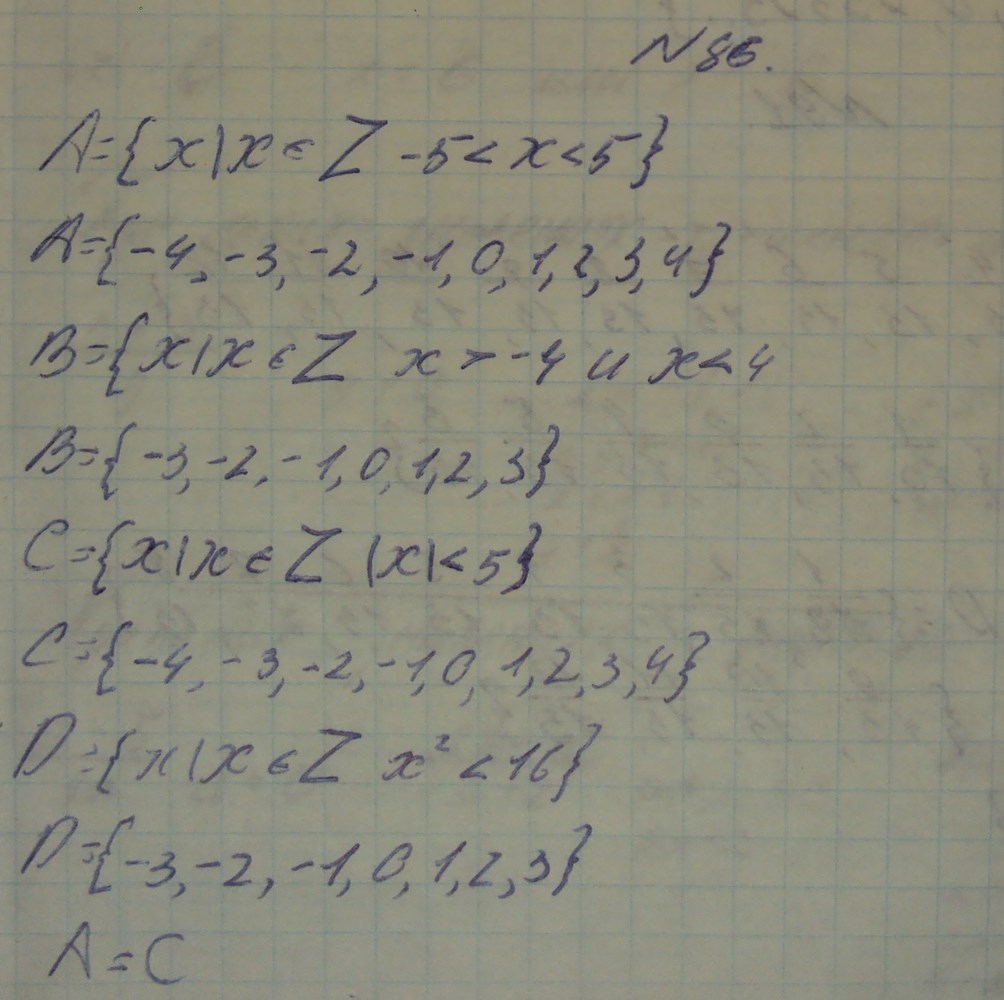 N 86.
A={x|x∈Z -5<x<5}
A={-4, -3, -2, -1, 0, 1, 2, 3, 4}
B={x|x∈Z x>-4 и x<4
B={-3, -2, -1, 0, 1, 2, 3}
C={x|x∈Z |x|<5}
C={-4, -3, -2, -1, 0, 1, 2, 3, 4}
D={x|x∈Z x²<16}
D={-3, -2, -1, 0, 1, 2, 3}
A=C